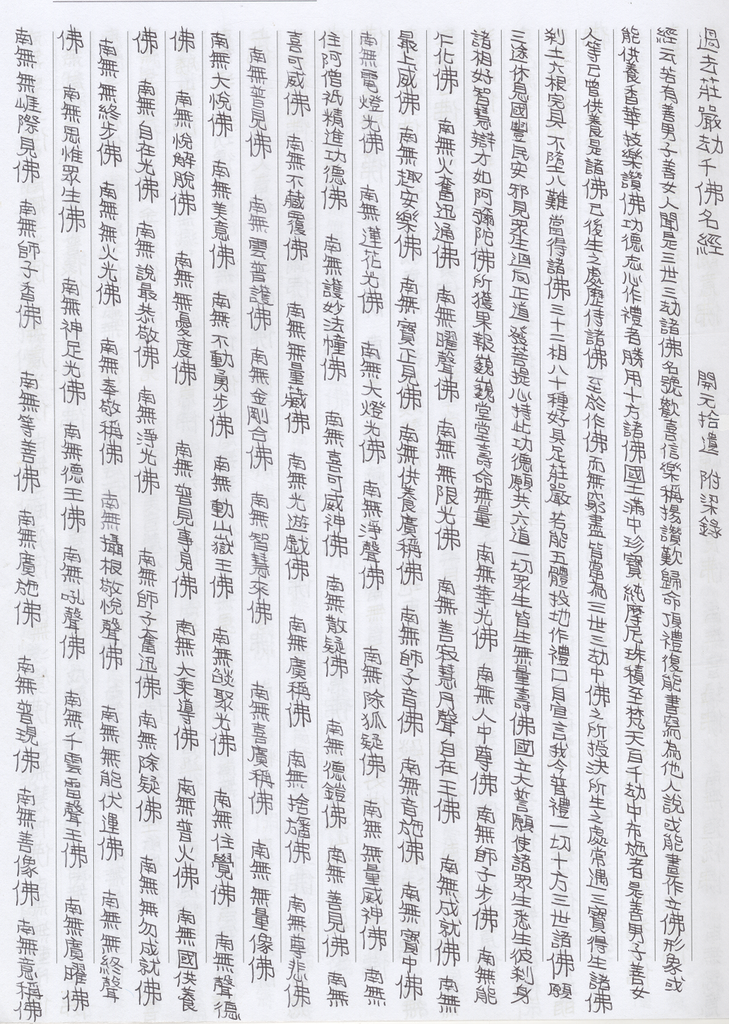 過去莊嚴劫千佛名經　開元拾遺　附梁錄
經云若有善男子善女人聞是三世三劫諸佛名號歡喜信樂稱揚讚歎歸命頂禮復能書寫為他人說或能畫作立佛形象或
能供養香華技樂讚佛功德志心作禮者勝用十方諸佛國土滿中珍寶純摩尼珠積至梵天百千劫中布施者是善男子善女
人等已曾供養是諸佛已後生之處歷侍諸佛至於作佛而無窮盡皆當為三世三劫中佛之所授決所生之處常遇三寶得生諸佛
剎土六根完具不墮八難當得諸佛三十二相八十種好具足莊嚴若能五體投地作禮口自宣言我今普禮一切十方三世諸佛願
三途休息國豐民安邪見眾生迴向正道發菩提心持此功德願共六道一切眾生皆生無量壽佛國立大誓願使諸眾生悉生彼剎身
諸相好智慧辯才如阿彌陀佛所獲果報巍巍堂堂壽命無量　南無華光佛　南無人中尊佛　南無師子步佛　南無能
仁化佛　南無火奮迅通佛　南無曜聲佛　南無無限光佛　南無善寂慧月聲自在王佛　南無成就佛　南無
最上威佛　南無趣安樂佛　南無寶正見佛　南無供養廣稱佛　南無師子音佛　南無音施佛　南無寶中
南無電燈光佛　南無蓮花光佛　南無大燈光佛　南無淨聲佛　南無除狐疑佛　南無無量威神佛　南無
住阿僧祇精進功德佛　南無護妙法幢佛　南無喜可威神佛　南無散疑佛　南無德鎧佛　南無善見佛　南無
喜可威佛　南無不藏覆佛　南無無量藏佛　南無光遊戲佛　南無廣稱佛　南無捨旛佛　南無尊悲佛
南無普見佛　南無雲普護佛　南無金剛合佛　南無智慧來佛　南無喜廣稱佛　南無無量像佛
南無大悅佛　南無美意佛　南無不動勇步佛　南無動山嶽王佛　南無燄聚光佛　南無住覺佛　南無聲德
佛　南無悅解脫佛　南無無憂度佛　南無普見事見佛　南無大乘導佛　南無普火佛　南無國供養
佛　南無自在光佛　南無說最恭敬佛　南無淨光佛　南無師子奮迅佛　南無除疑佛　南無無勿成就佛
南無無終步佛　南無無火光佛　南無奉敬稱佛　南無攝根敬悅聲佛　南無無能伏運佛　南無無終聲
佛　南無思惟眾生佛　南無神足光佛　南無德王佛　南無吼聲佛　南無千雲雷聲王佛　南無廣曜佛
南無無崖際見佛　南無師子香佛　南無等善佛　南無廣施佛　南無普現佛　南無善像佛　南無意稱佛